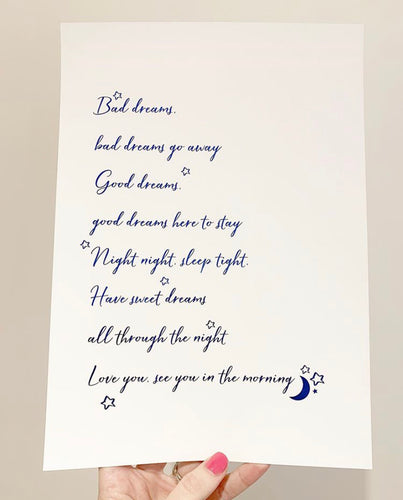 Bad dreams,
bad dreams go away
Good dreams,
good dreams here to stay
Night night, sleep tight,
Have sweet dreams
all through the night
Love you, see you in the morning